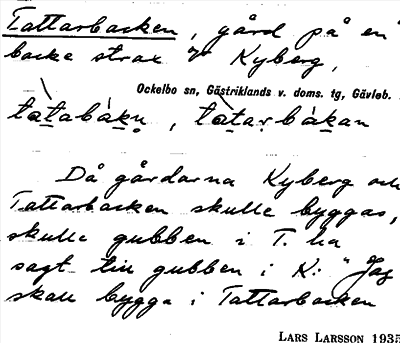 Tattarbacken, gård på en
backe strax V Kyberg,
Ockelbo sn, Gästriklands v. doms. tg, Gävleb.
tatabákn, tatarbákan
Då gårdarna Kyberg och
Tattarbacken skulle byggas,
skulle gubben i T. ha
sagt till gubben i K: "Jag
skall bygga i Tattarbacken
LARS LARSSON 1935